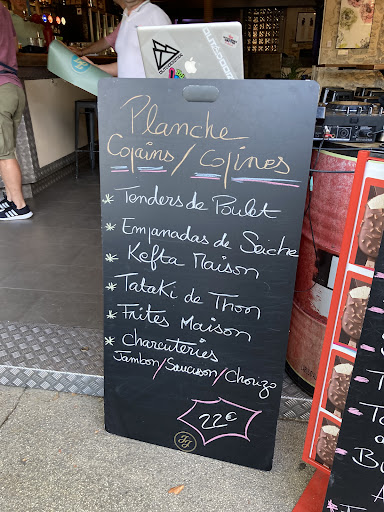 Planche
Copains / Copines
* Tenders de Poulet
* Empanadas de Seiche
* Kefta Maison
* Tataki de Thon
* Frites Maison
* Charcuteries
Jambon/Saucisson/Chorizo
22€